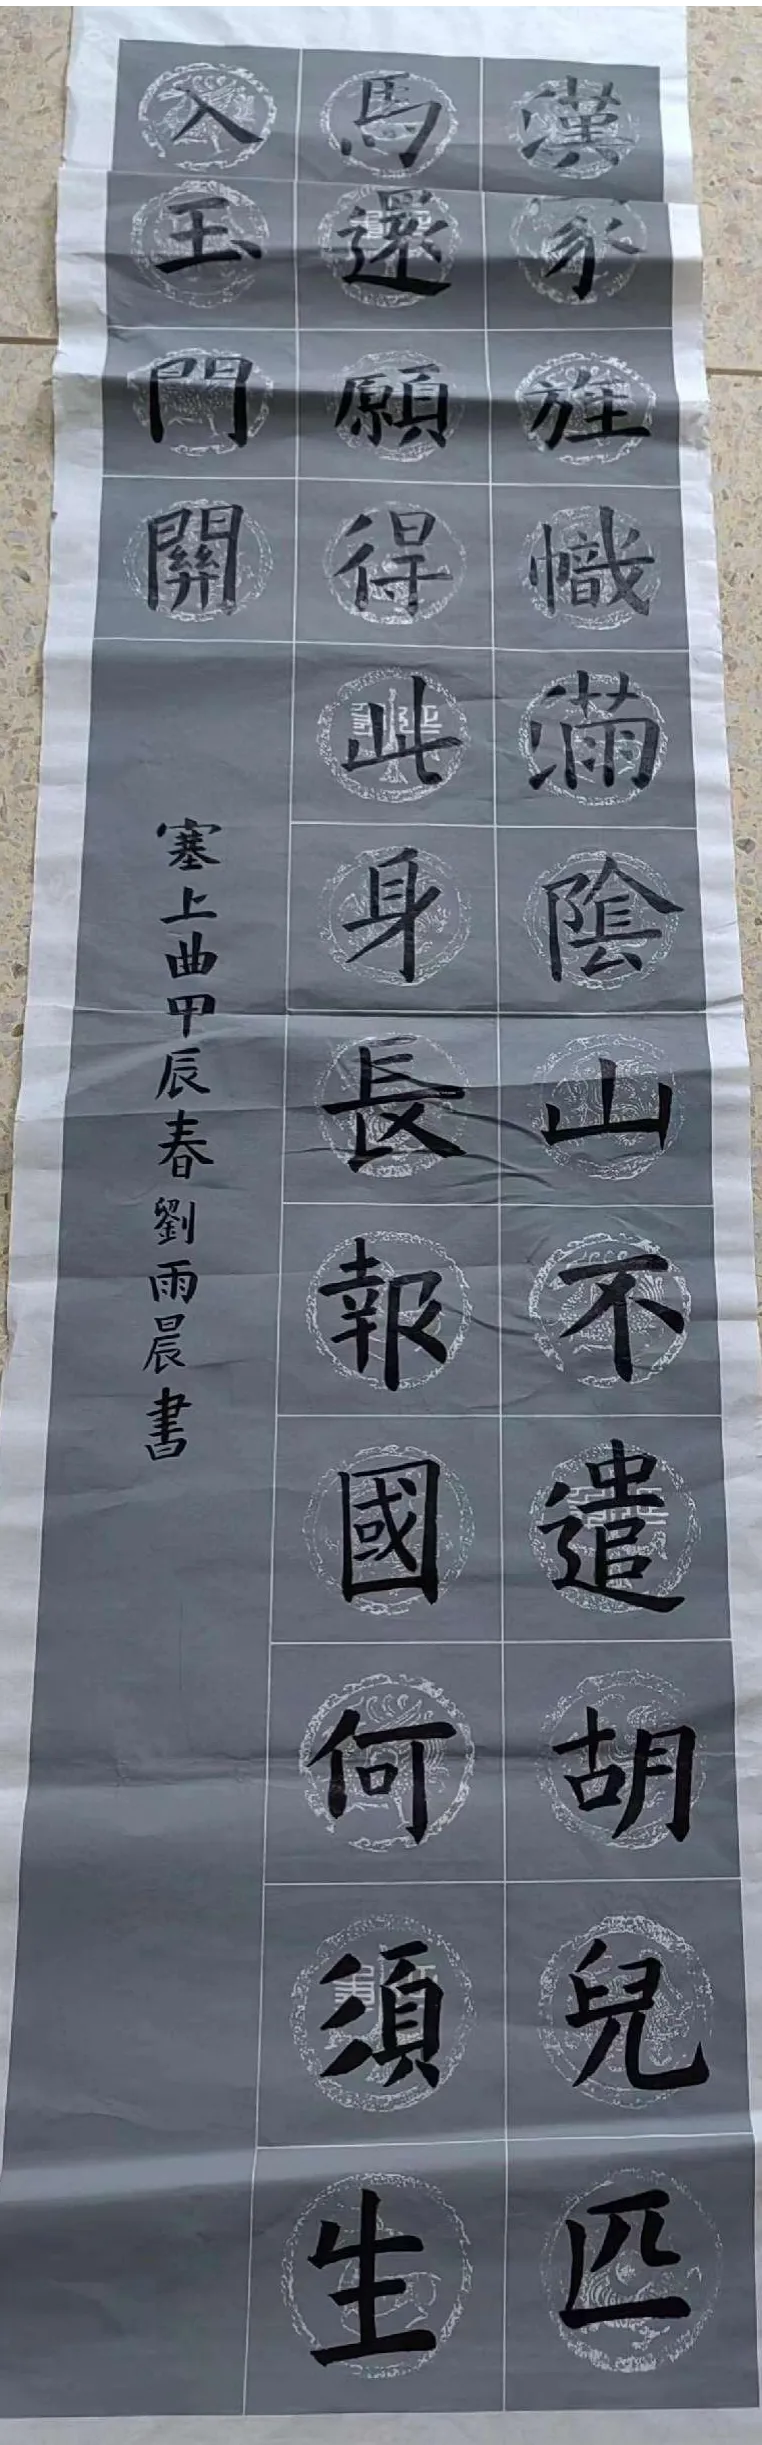 漢家旌幟滿陰山不遣胡兒匹
馬還願得此身長報國何須生
入玉門關
塞上曲甲辰春劉雨晨書